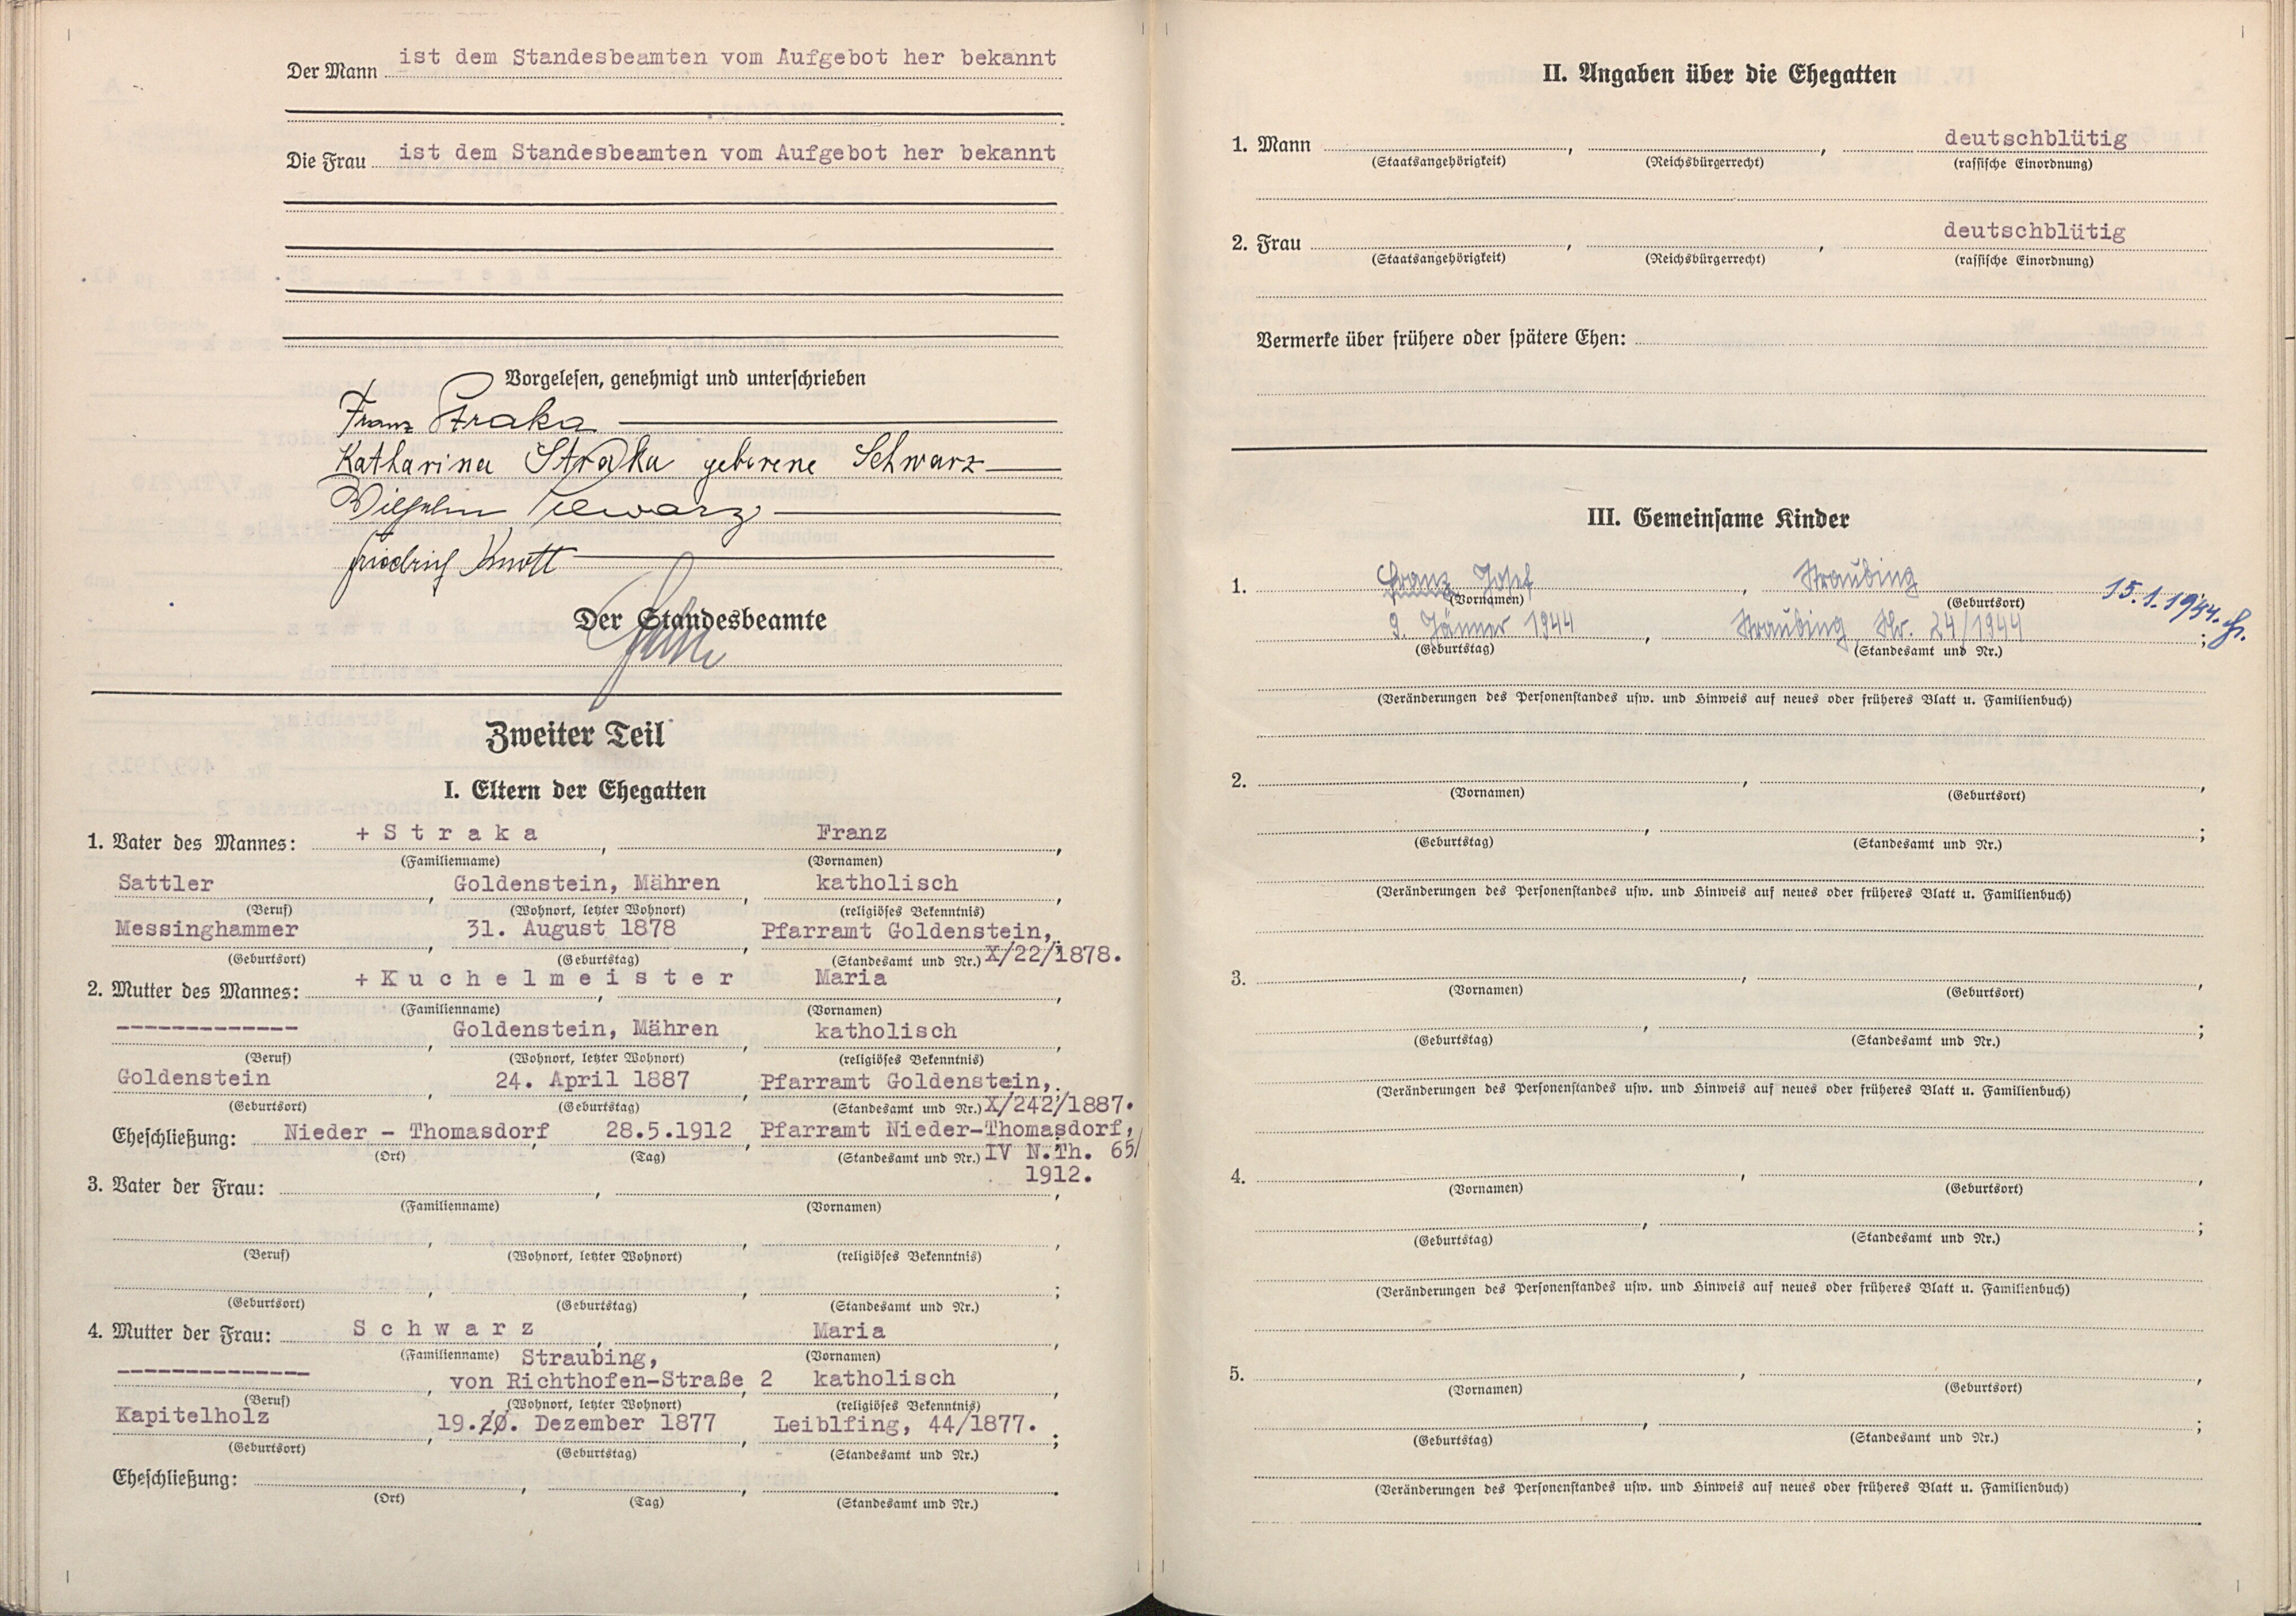 Der Mann ist dem Standesbeamten vom Aufgebot her bekannt
Die Frau ist dem Standesbeamten vom Aufgebot her bekannt
Vorgelesen, genehmigt und unterschrieben
Franz Straka
Katharina Straka geborene Schwarz
Wilhelm
Friedrich Knott
Der Standesbeamte
Zweiter Teil
I. Eltern der Ehegatten
1. Vater des Mannes: + S t r a k a , Franz ,
(Familienname) (Vornamen)
Sattler , Goldenstein, Mähren , katholisch ,
(Beruf) (Wohnort, letzter Wohnort) (religiöses Bekenntnis)
Messinghammer , 31. August 1878 , Pfarramt Goldenstein, ;
(Geburtsort) (Geburtstag) (Standesamt und Nr.) X/22/1878.
2. Mutter des Mannes: + K u c h e l m e i s t e r , Maria ,
(Familienname) (Vornamen)
------------- , Goldenstein, Mähren , katholisch ,
(Beruf) (Wohnort, letzter Wohnort) (religiöses Bekenntnis)
Goldenstein , 24. April 1887 , Pfarramt Goldenstein, ;
(Geburtsort) (Geburtstag) (Standesamt und Nr.) X/242/1887.
Eheschließung: Nieder - Thomasdorf , 28.5.1912 , Pfarramt Nieder-Thomasdorf,
(Ort) (Tag) (Standesamt und Nr.) IV N.Th. 65/
1912.
3. Vater der Frau: , ,
(Familienname) (Vornamen)
, , ,
(Beruf) (Wohnort, letzter Wohnort) (religiöses Bekenntnis)
, , ;
(Geburtsort) (Geburtstag) (Standesamt und Nr.)
4. Mutter der Frau: S c h w a r z , Maria ,
(Familienname) Straubing, (Vornamen)
-------------- , von Richthofen-Straße 2 , katholisch ,
(Beruf) (Wohnort, letzter Wohnort) (religiöses Bekenntnis)
Kapitelholz , 19.20. Dezember 1877 , Leiblfing, 44/1877. ;
(Geburtsort) (Geburtstag) (Standesamt und Nr.)
Eheschließung: , , .
(Ort) (Tag) (Standesamt und Nr.)
II. Angaben über die Ehegatten
1. Mann , , deutschblütig
(Staatsangehörigkeit) (Reichsbürgerrecht) (rassische Einordnung)
2. Frau , , deutschblütig
(Staatsangehörigkeit) (Reichsbürgerrecht) (rassische Einordnung)
Vermerke über frühere oder spätere Ehen:
III. Gemeinsame Kinder
1. Franz Josef , Straubing
(Vornamen) (Geburtsort) 15.1.1944.
9. Jänner 1944 , Straubing Nr. 24/1944 ;
(Geburtstag) (Standesamt und Nr.)
(Veränderungen des Personenstandes usw. und Hinweis auf neues oder früheres Blatt u. Familienbuch)
2. , ,
(Vornamen) (Geburtsort)
, ;
(Geburtstag) (Standesamt und Nr.)
(Veränderungen des Personenstandes usw. und Hinweis auf neues oder früheres Blatt u. Familienbuch)
3. , ,
(Vornamen) (Geburtsort)
, ;
(Geburtstag) (Standesamt und Nr.)
(Veränderungen des Personenstandes usw. und Hinweis auf neues oder früheres Blatt u. Familienbuch)
4. , ,
(Vornamen) (Geburtsort)
, ;
(Geburtstag) (Standesamt und Nr.)
(Veränderungen des Personenstandes usw. und Hinweis auf neues oder früheres Blatt u. Familienbuch)
5. , ,
(Vornamen) (Geburtsort)
, ;
(Geburtstag) (Standesamt und Nr.)
(Veränderungen des Personenstandes usw. und Hinweis auf neues oder früheres Blatt u. Familienbuch)